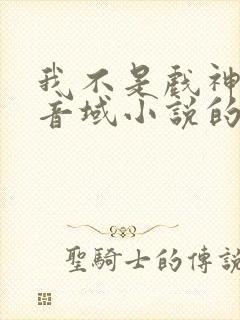 我不是戲神
音域小說的
聖騎士的傳說